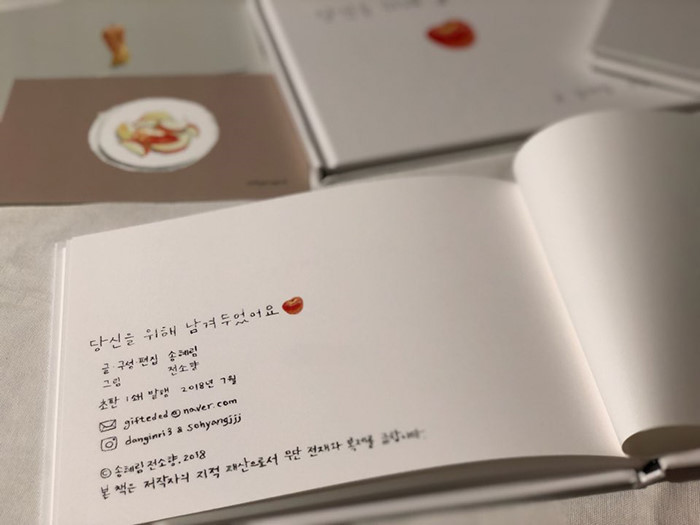 당신을 위해 남겨두었어요
글·구성·편집 송혜림
그림 전소양
초판 1쇄 발행 2018년 7월
gifteded@naver.com
danginri3 & sohyangjjj
©송혜림 전소양, 2018
본 책은 저작자의 지적 재산으로서 무단 전재와 복제를 금합니다.